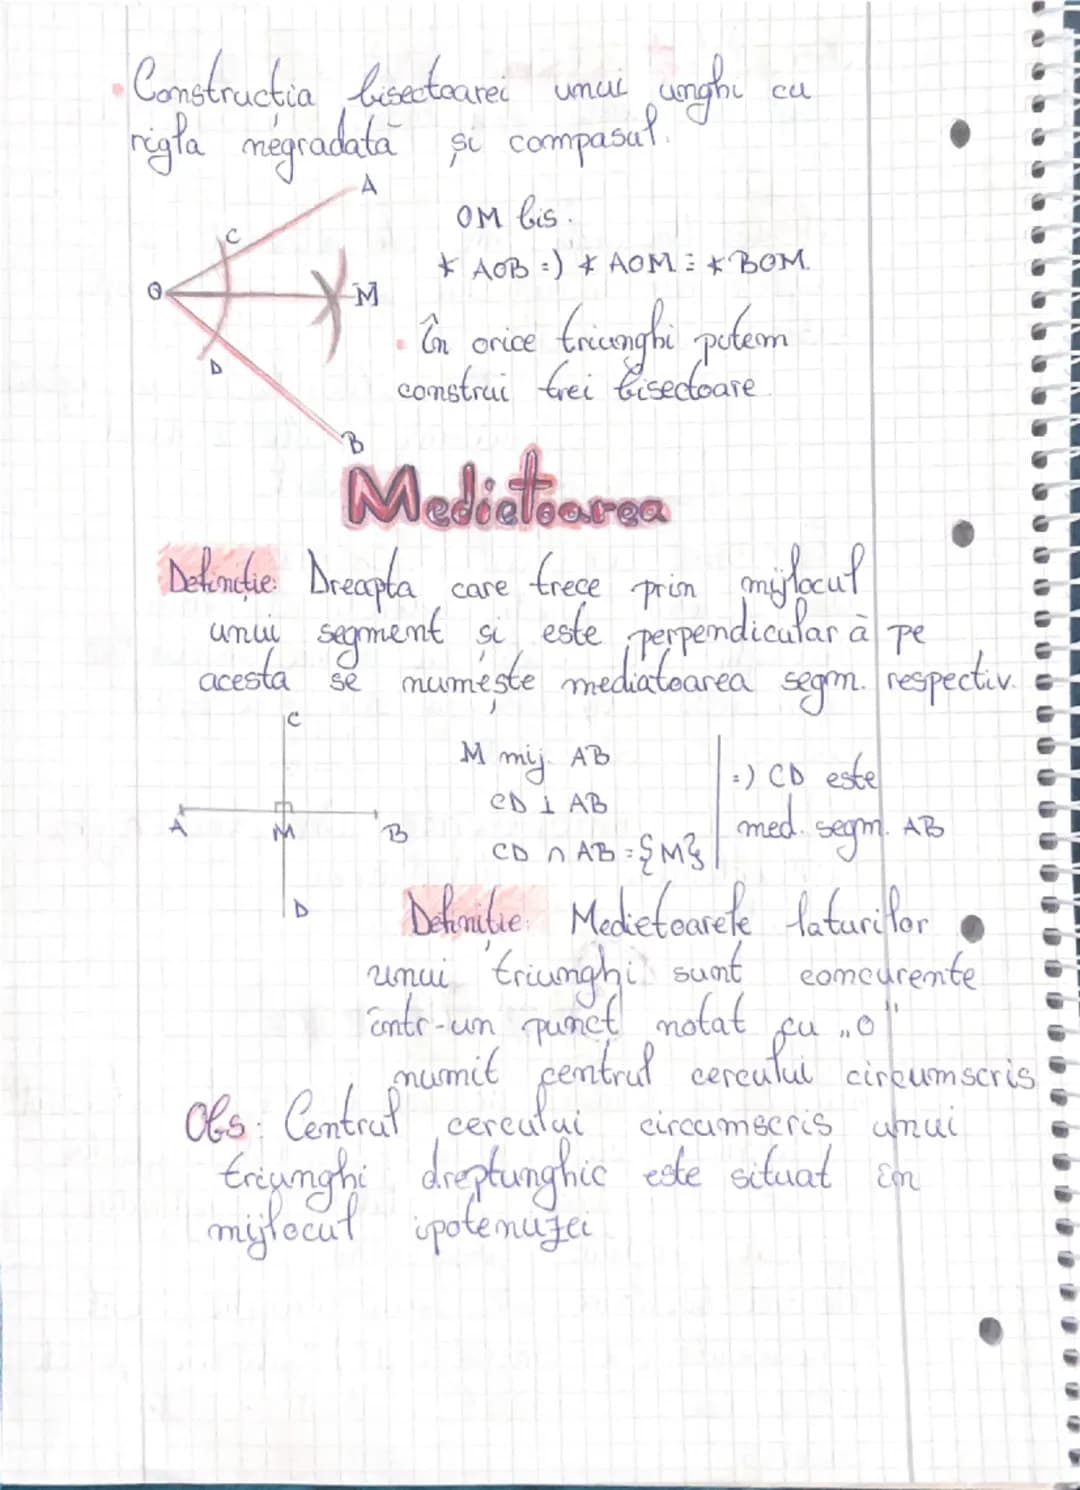 • Construcția bisectoarei unui unghi cu
rigla negradată și compasul.
A
C
O
M
D
B
OM bis.
∢ AOB =) ∢ AOM ≡ ∢ BOM.
• În orice triunghi putem
construi trei bisectoare
Medietoarea
Definiție: Dreapta care trece prin mijlocul
unui segment și este perpendiculară pe
acesta se numește mediatoarea segm. respectiv.
C
A
M
B
D
M mij. AB
CD ⊥ AB
CD ∩ AB = {M}
=) CD este
med. segm. AB
Definiție: Medietoarele laturilor
unui triunghi sunt concurente
într-un punct notat cu „O"
numit centrul cercului circumscris
Obs: Centrul cercului circumscris unui
triunghi dreptunghic este situat în
mijlocul ipotenuzei